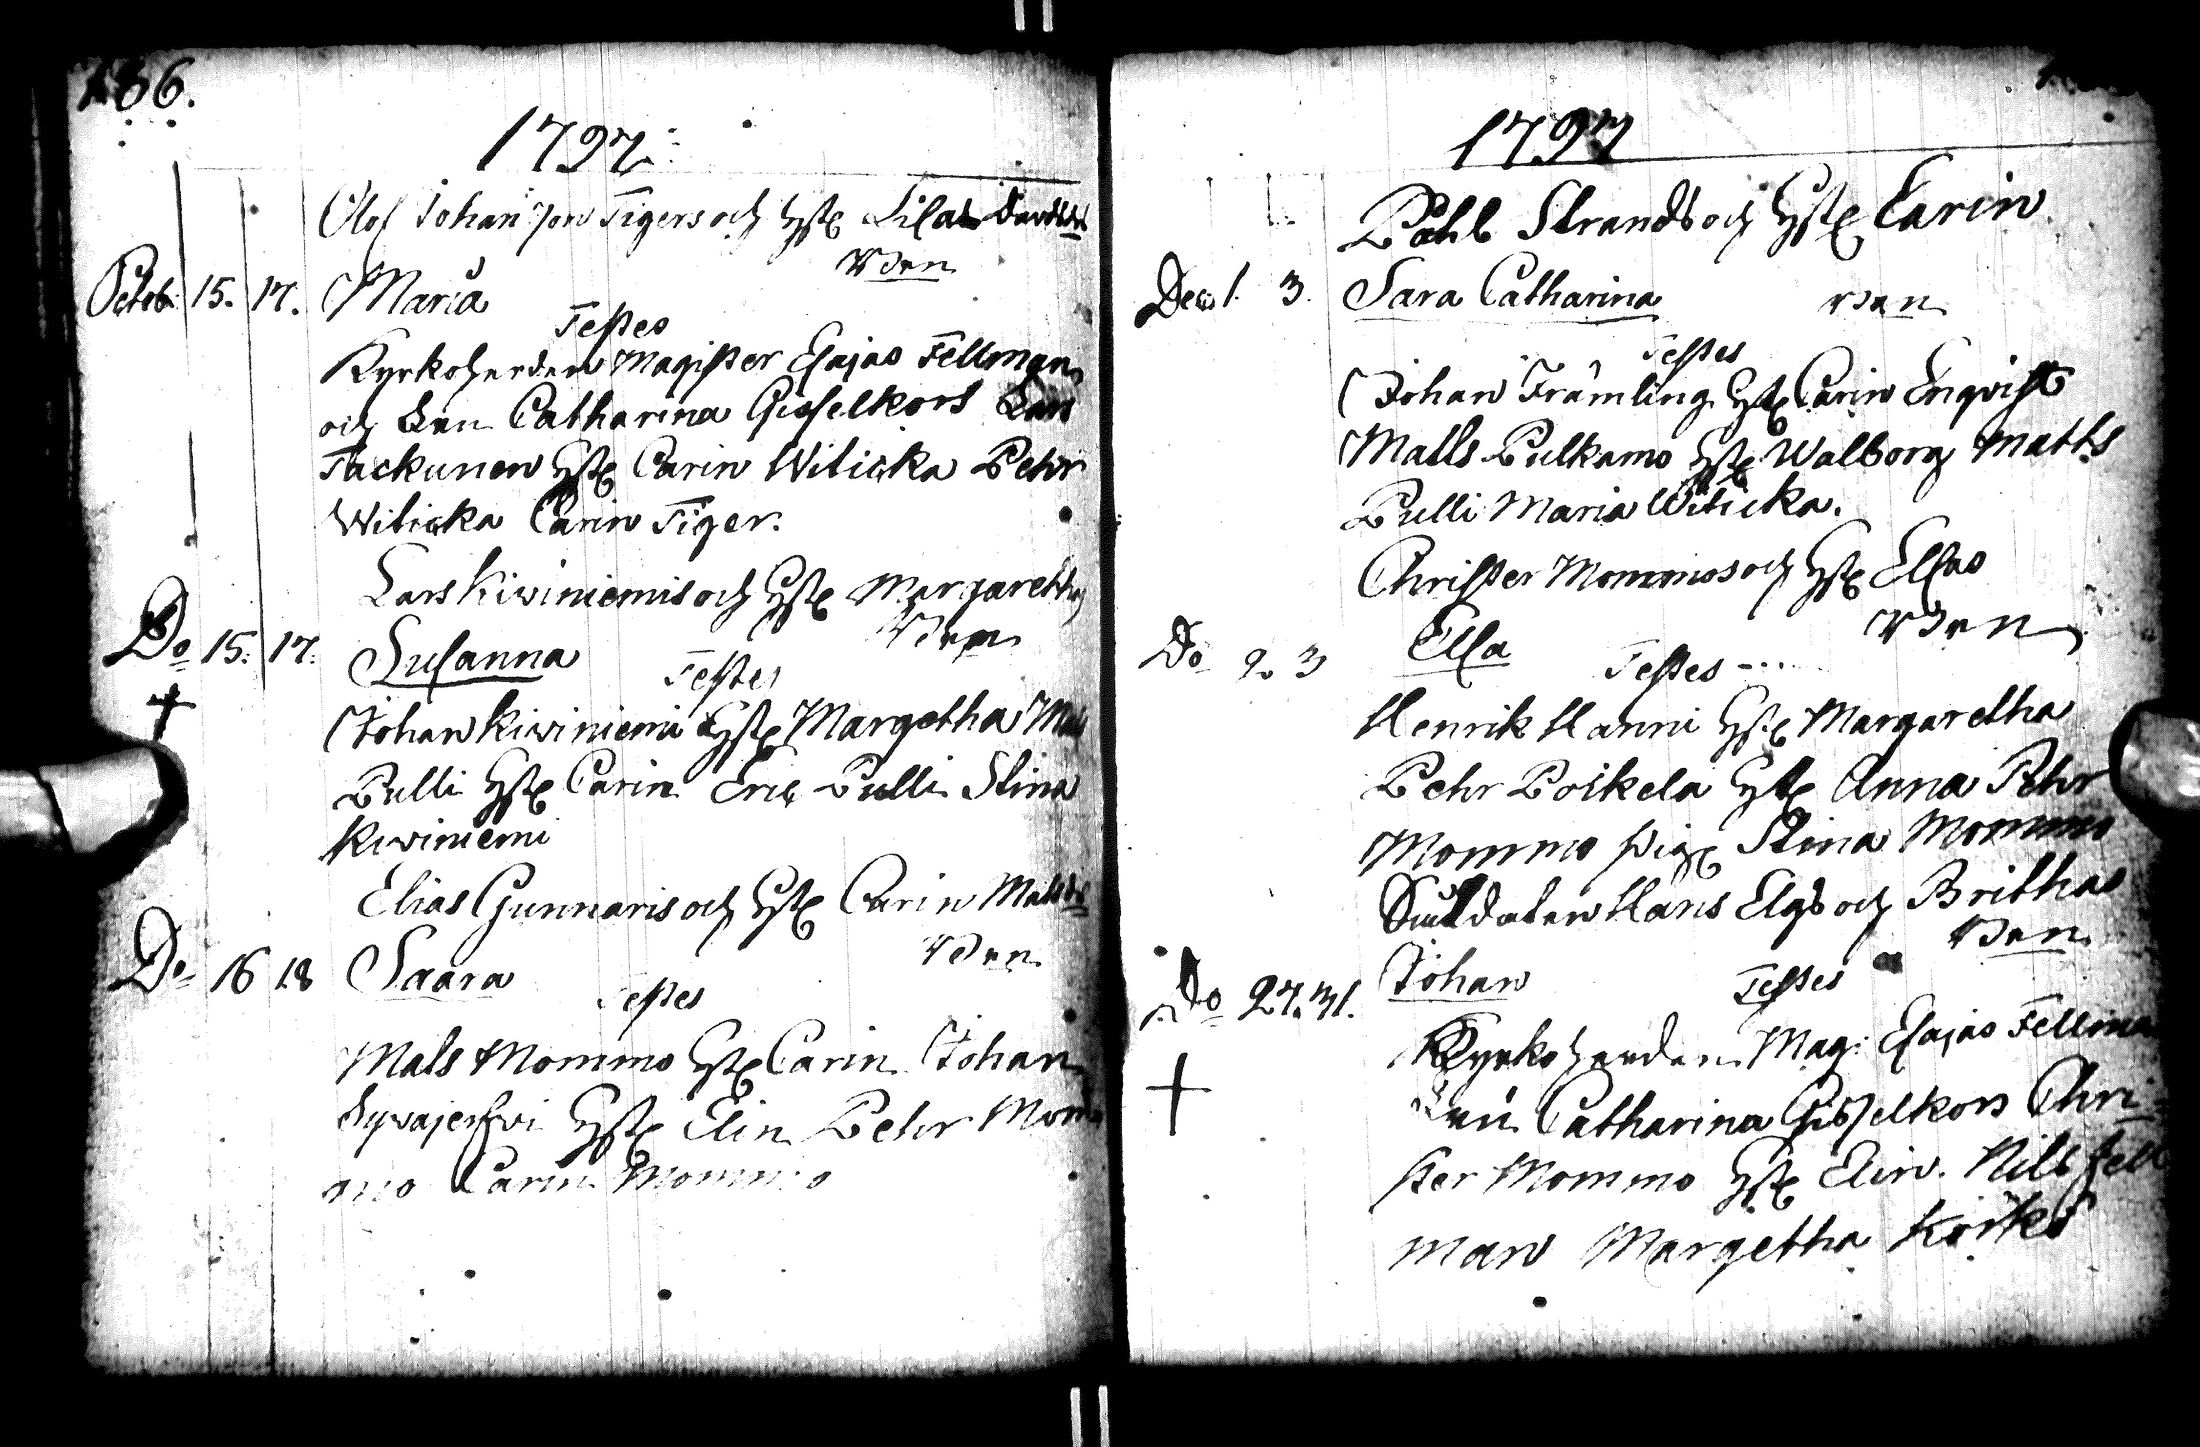 186.
1797
Olof Johansson Tigers och Hst Lisas
Vden
Octob: 15. 17. Maria
Testes
Kyrkoherden Magister Esajas Fellman
och Fru Catharina Gisselkors Lars
Tackunen Hst Carin Witicka Pehr
Witicka Carin Tiger.
Lars Kiviniemis och Hst Margarethas
Vden
Do 15. 17. Susanna
Testes
Johan Kiviniemi Hst Margetha Mats
Pulli Hst Carin Eric Pulli Stina
Kiviniemi
Elias Gunnaris och Hst Carin Matsdr
Vden
Do 16 18 Saara
Testes
Mats Mommo Hst Carin Johan
Sywäjerfvi Hst Elin Pehr Mom
mo Carin Mommo
1797
Påhl Strands och Hst Carin
Dec: 1. 3. Sara Catharina Vden
Testes
Johan Främling Hst Carin Enqvist
Matts Pulkamo Hst Walborg Matts
Pulli Maria Witicka.
Christer Mommos och Hst Elsas
Vden
Do 2 3 Elsa
Testes
Henrik Hanni Hst Margaretha
Pehr Poikela Hst Anna Pehr
Mommo pig Stina Mommo
Suldaten Hans Elgs och Brithas
Vden
Do 27. 31. Johan
Testes
Kyrkoherden Mag: Esajas Fellman
Fru Catharina Gisselkors Chri
ster Mommo Hst Elin. Nils Fell
man Margetha